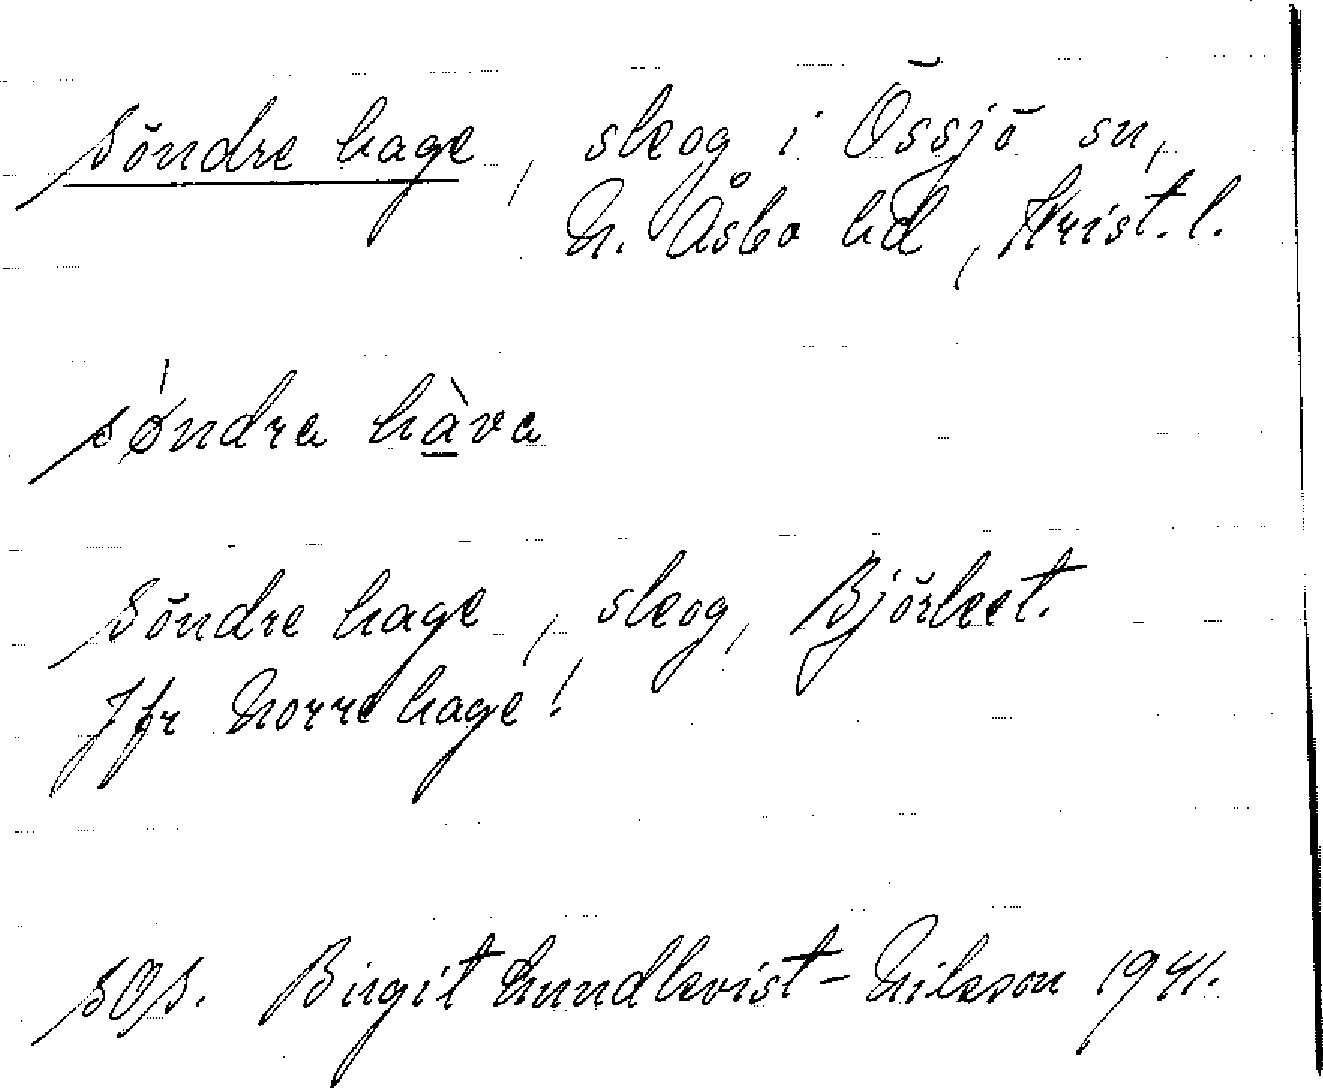 Söndre hage, skog i Össjö sn,
N. Åsbo hd, Krist. l.
sǿndra hàva
Söndre hage, skog, Björket.
Jfr Norre hage!
SOS. Birgit Lundkvist-Nilsson 1941.